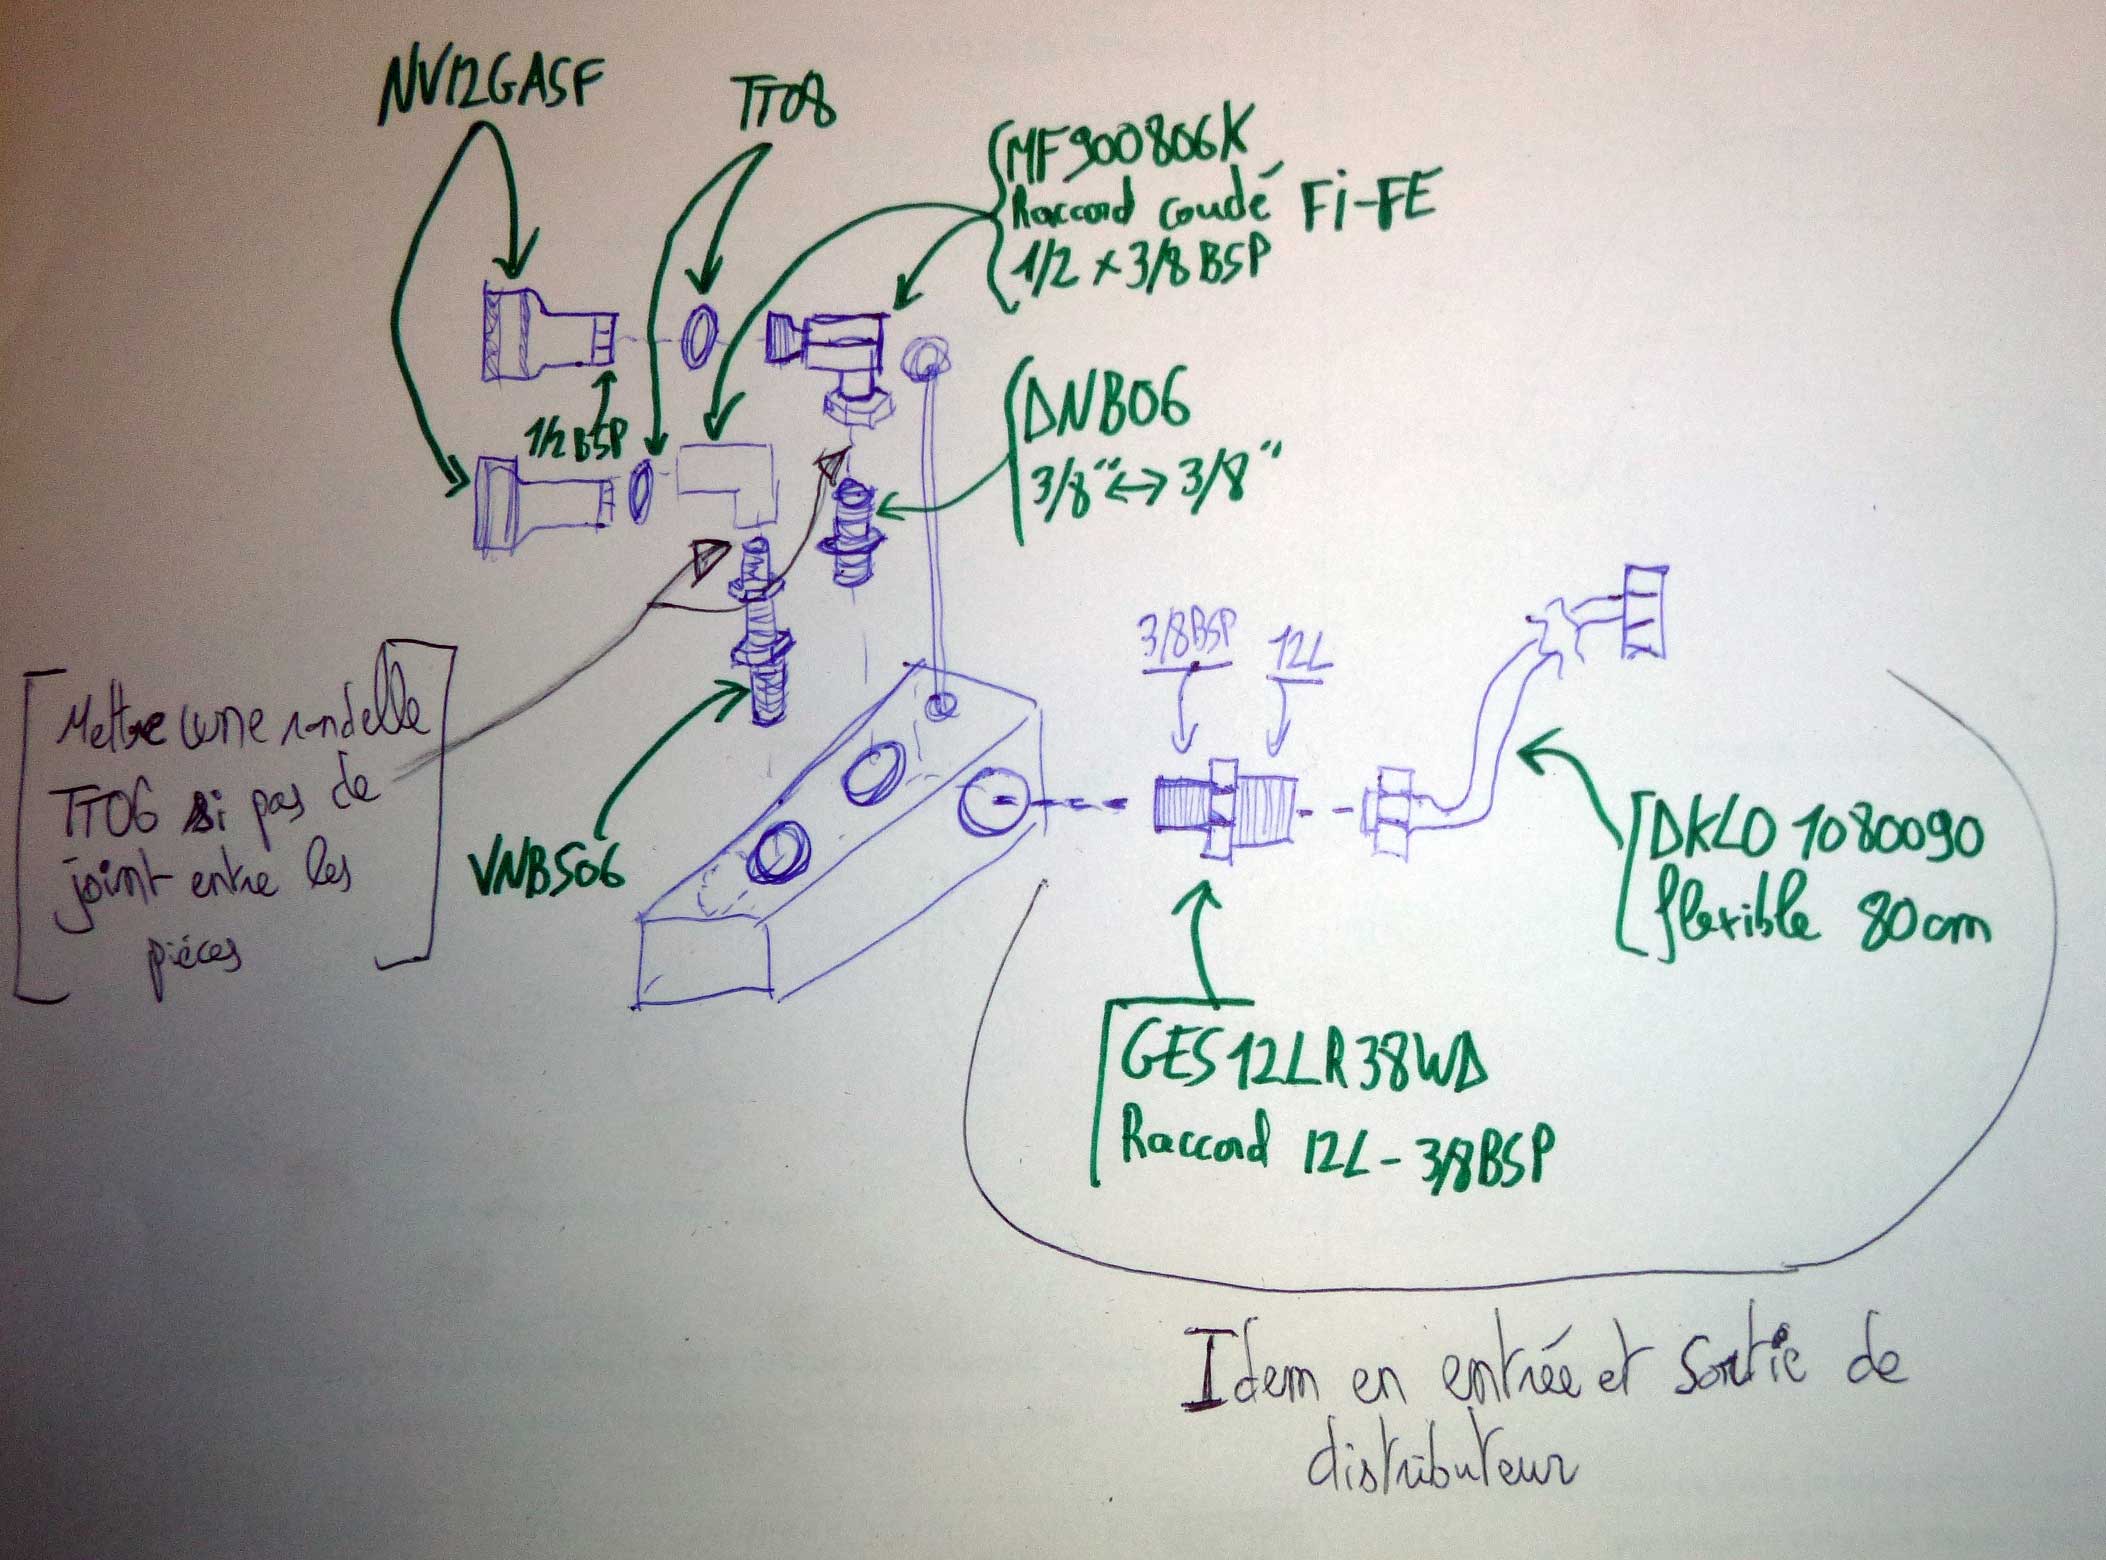 NV12GASF
TT08
MF900806K
Raccord coudé Fi-FE
1/2 x 3/8 BSP
1/2 BSP
DNB06
3/8" ↔ 3/8"
3/8BSP
12L
Mettre une rondelle
TT06 si pas de
joint entre les
pièces
VNBS06
DKLO 1080090
flexible 80cm
GES12LR38WD
Raccord 12L - 3/8BSP
Idem en entrée et sortie de
distributeur